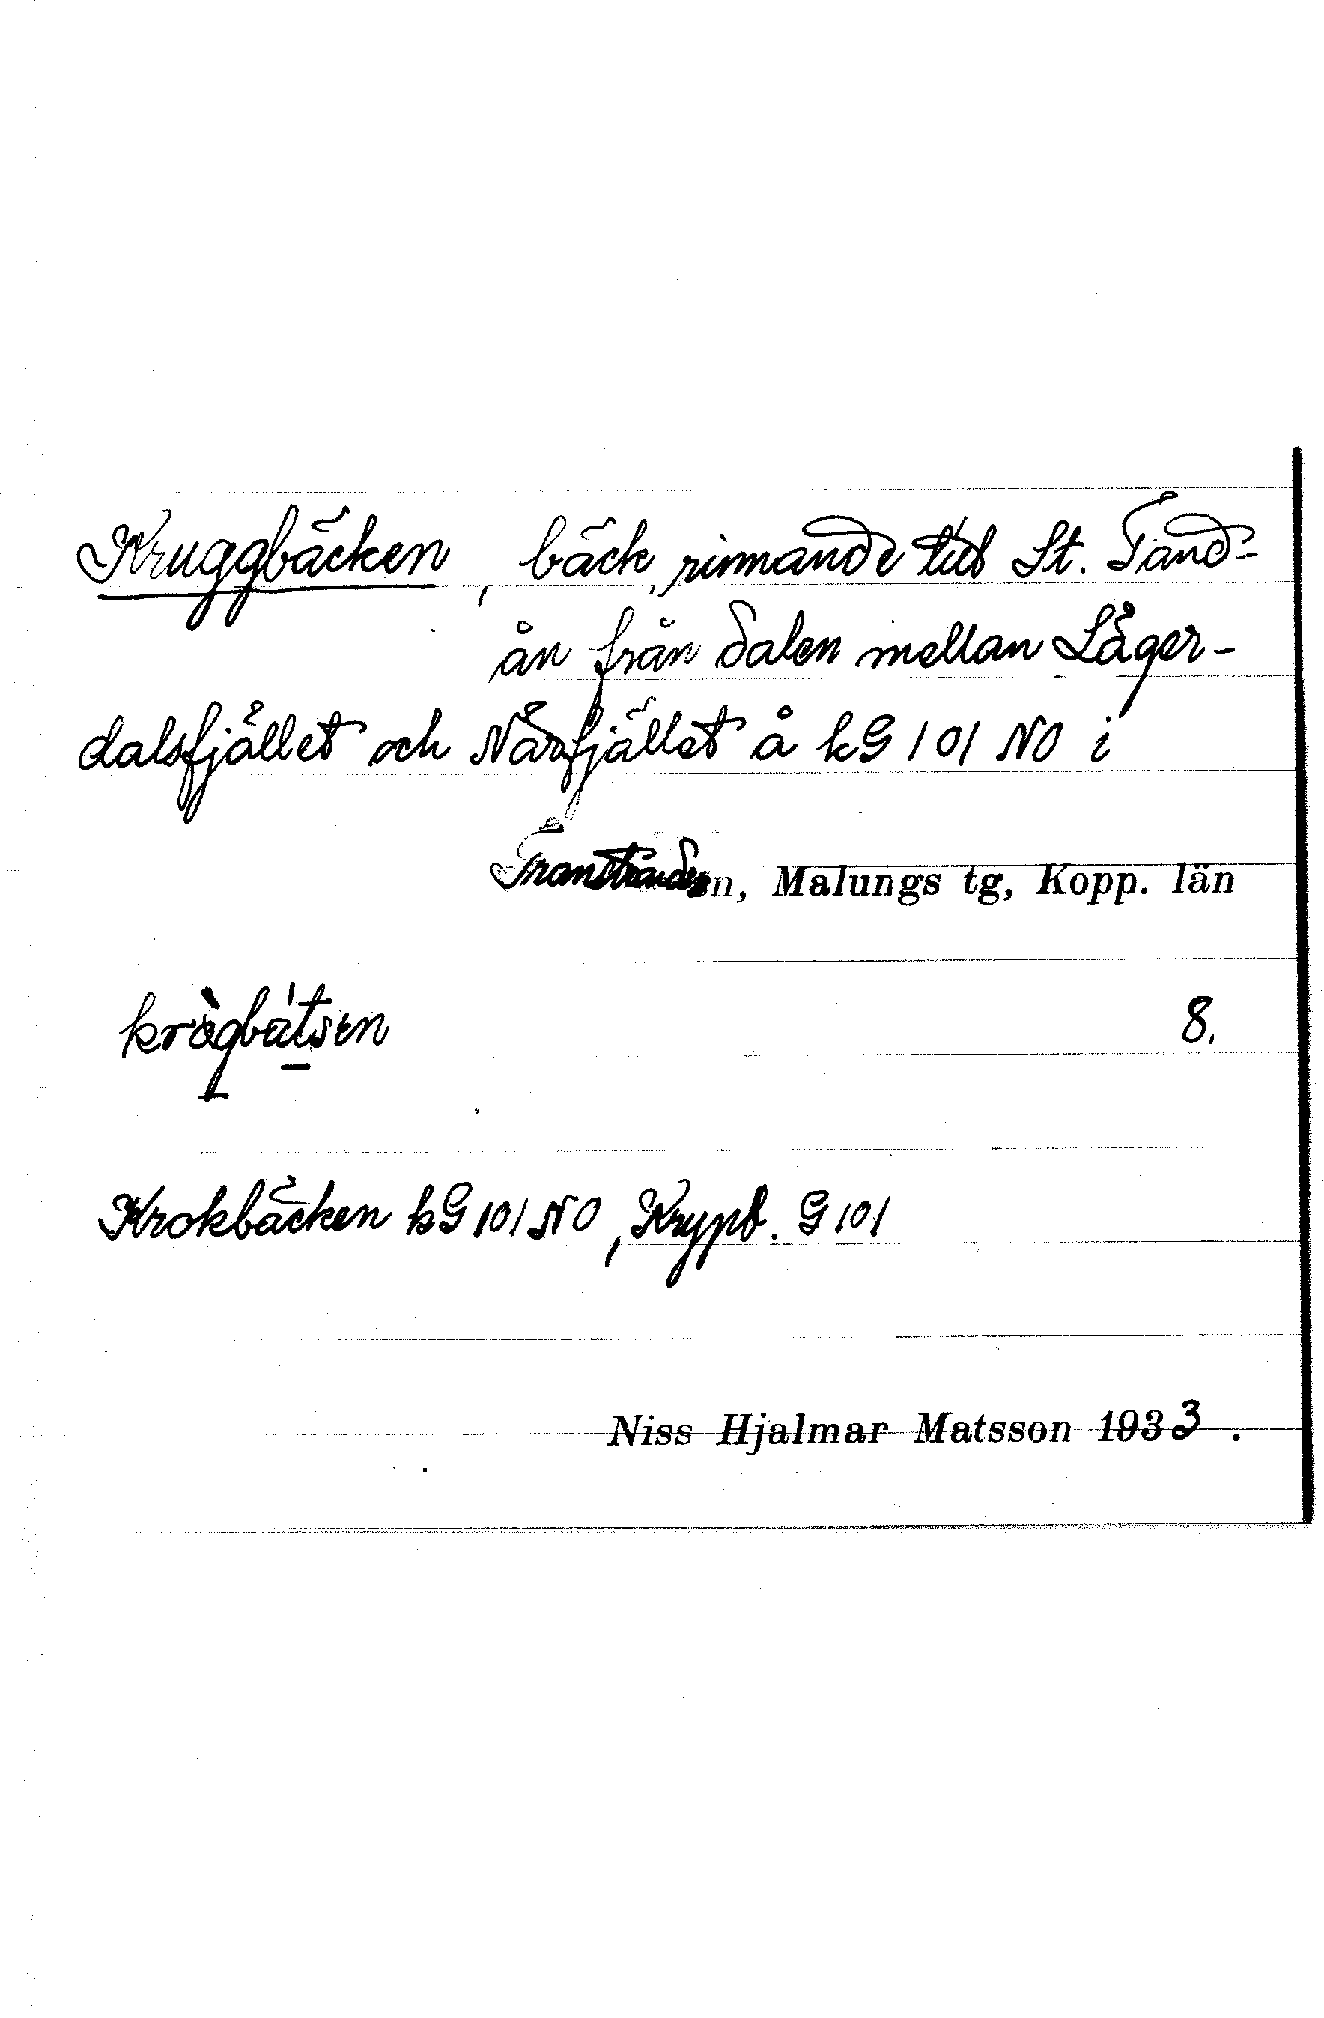 Kruggbäcken, bäck, rinnande till St. Tand-
ån från dalen mellan Låger-
dalsfjället och Närfjället å kG 101 NO i
Transtranden, Malungs tg, Kopp. län
8.
Krokbäcken kG 101 NO, Krypb. G 101
Niss Hjalmar Matsson 1933.